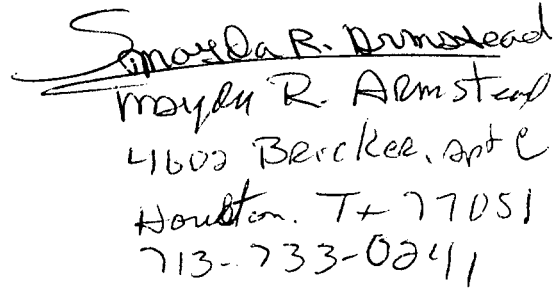 Mayda R. Armstead
Mayda R. Armstead
4602 Bricker, apt C
Houston. Tx 77051
713-733-0241